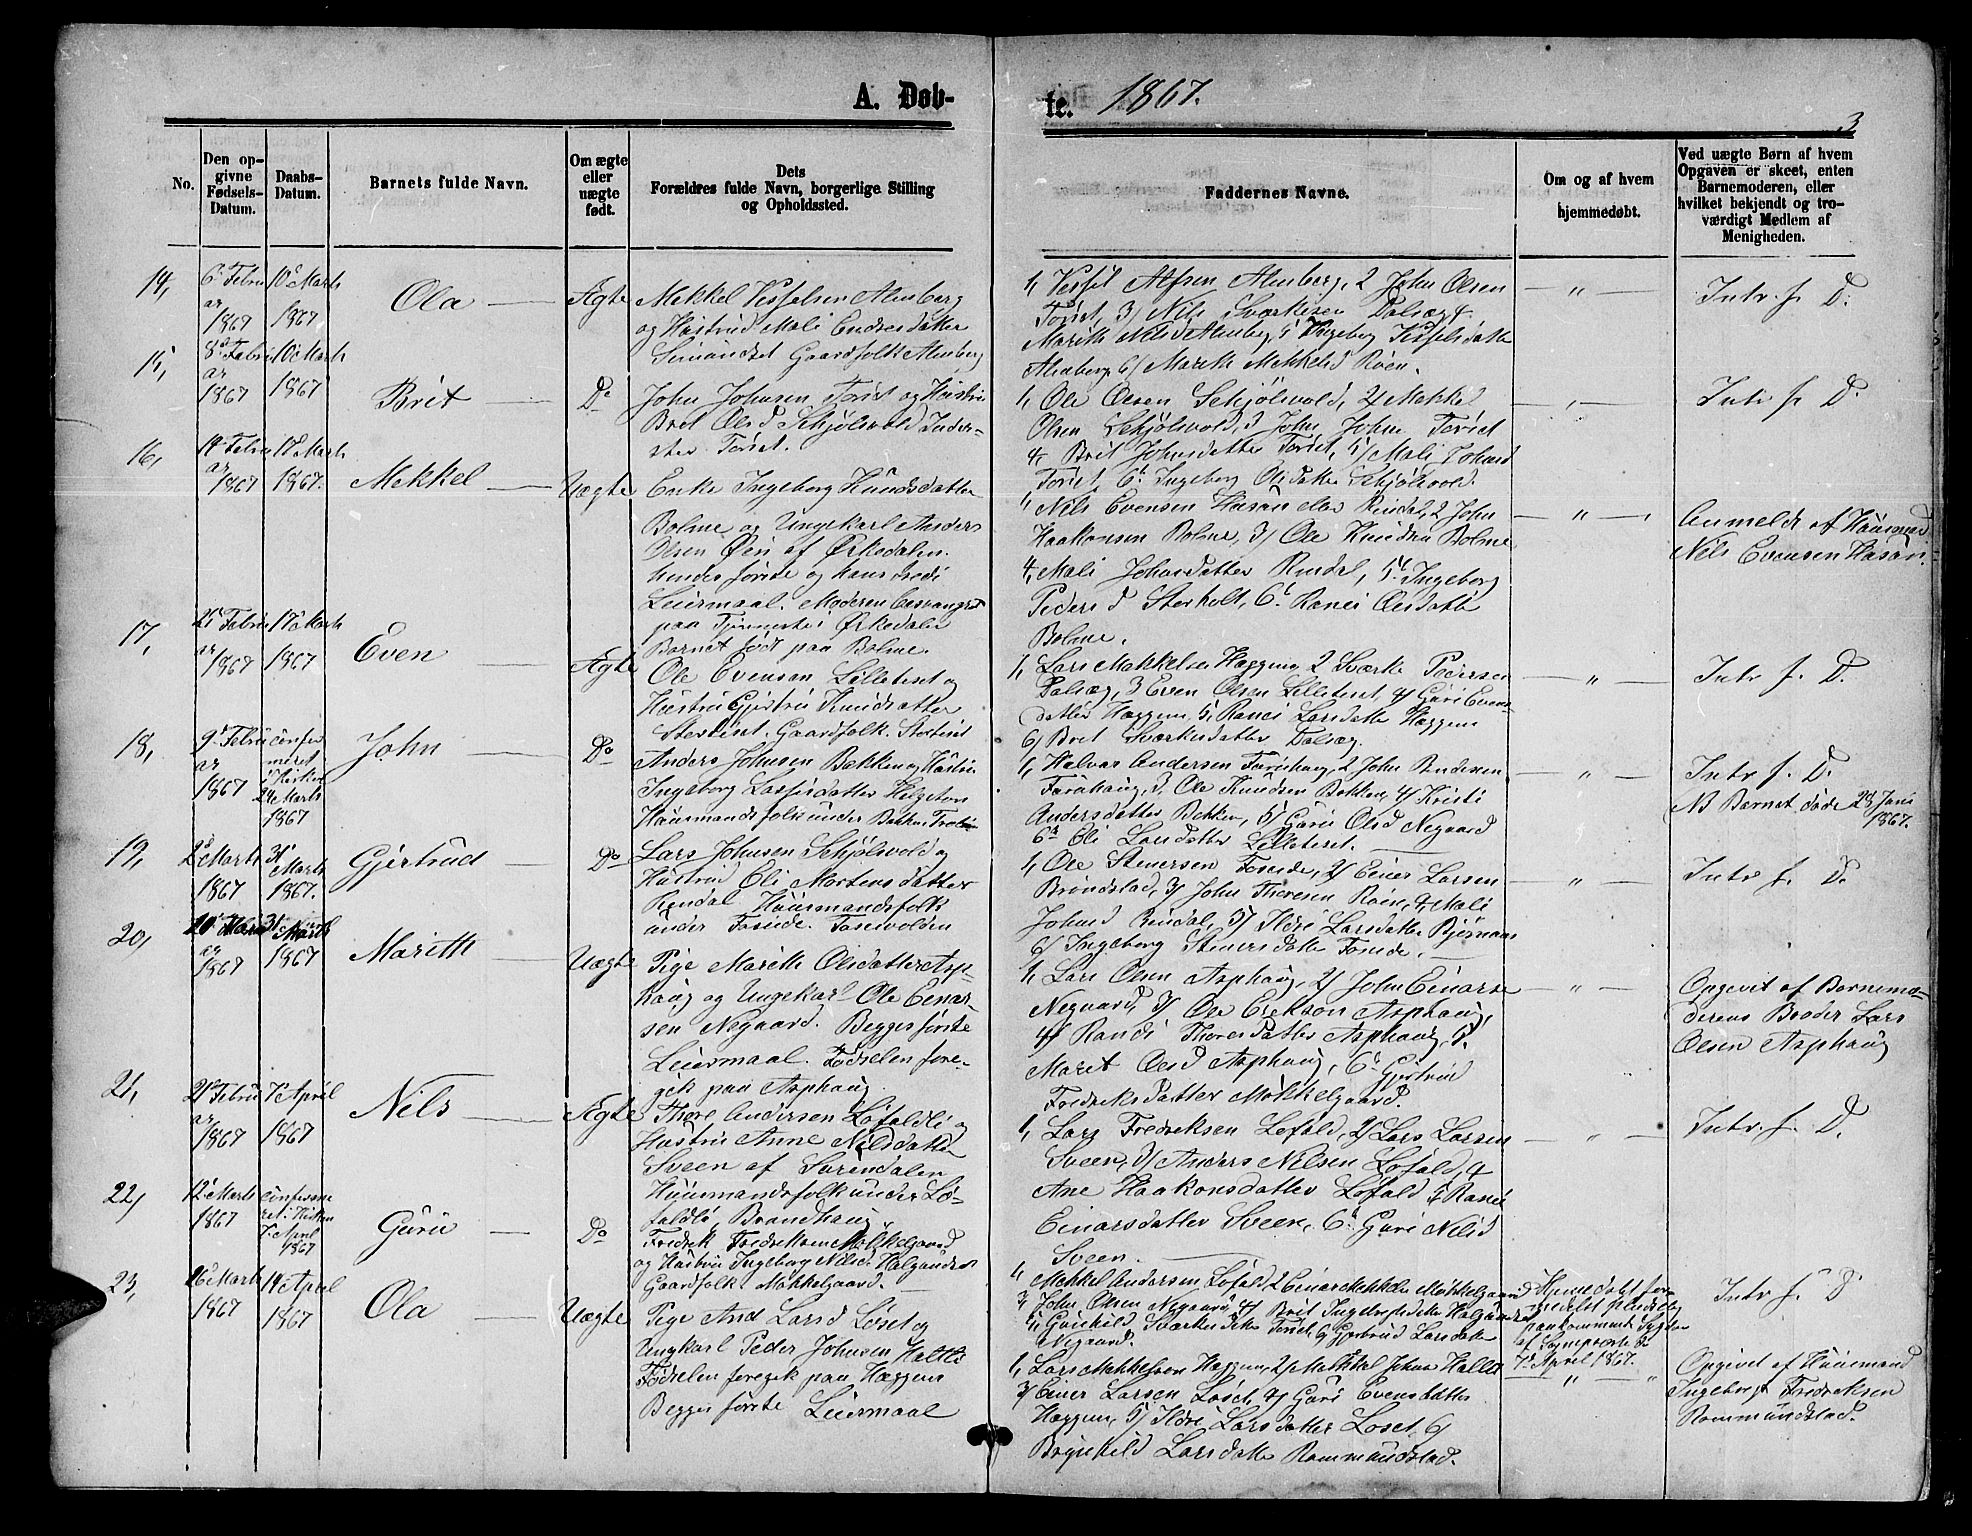 A. Døb-
te. 1867.
3
No.
Den op-
givne
Fødsels-
Datum.
Daabs-
Datum.
Barnets fulde Navn.
Om ægte
eller
uægte
født.
Dets
Forældres fulde Navn, borgerlige Stilling
og Opholdssted.
Faddernes Navne.
Om og af hvem
hjemmedøbt.
Ved uægte Børn af hvem
Opgaven er skeet, enten
Barnemoderen, eller
hvilket bekjendt og tro-
værdigt Medlem af
Menigheden.
14,
6 Febru
ar
1867
10 Marts
1867
Ola
Ægte
Mekkel Vesselsen Almberg
og Hustrud Mali Endresdatter
Gaardfolk Almberg
1, Vessel Alfsen Almberg, 2 John Olsen
Toriset, 3/ Nils Sværkesen Dalsæg 4
Marith Nilsd Almberg, 5 Ingeborg Vesselsdatter
Almberg, 6/ Marith Mekkelsd Røen.
"
Intr. f. D.
15,
8 Febru
ar
1867
10 Marts
1867
Brit
Do
John Johnsen Toriset og Hustru
Bret Olsd Skjølsvold Inder-
ster Toriset.
1, Ole Olsen Skjølsvold, 2/ Mekkel
Olsen Skjølsvold, 3 John John Toriset
4, Brit Johnsdatter Toriset, 5/ Mali Johnsd
Toriset, 6 Ingeborg Olsdatter Skjølsvold.
"
Intr f. D.
16,
14 Febru
ar
1867
17 Marts
1867.
Mekkel
Uægte
Enke Ingeborg Knudsdatter
Bolme og Ungekarl Anders
Olsen Øien af Ørkedalen.
hendes første og hans tredie
Leiermaal. Moderen besvangret
paa Tjeneste i Ørkedalen
Barnet født paa Bolme.
1, Nils Evensen Hasan eller Rindal, 2 John
Haakonsen Bolme, 3/ Ole Knudsen Bolme
4, Mali Johnsdatter Rindal, 5 Ingeborg
Peders d Storholt, 6 Ranei Olsdatter
Bolme.
"
Anmeldt af Huusmand
Nils Evensen Hasan
17,
21 Febru
ar
1867
17 Marts
1867
Even
Ægte
Ole Evensen Lilleteset og
Hustru Gjertru Knudsdatter
Gaardfolk.
1, Lars Mekkelsen Heggem, 2 Sværke Pedersen
Dalsæg, 3 Even Olsen Lilleteset, 4/ Guri Evens-
datter Heggem, 5, Ranei Larsdatter Heggem
6/ Bret Sværkesdatter Dalsæg.
"
Intr f. D.
18,
9 Febru
ar
1867
confir
meret
i Kirken
24 Marts
1867
John
Do
Anders Johnsen Bakken og Hustru
Ingeborg Lassesdatter Helgeton
Huusmandsfolk under Bakken
1, Halvar Andersen Furuhaug, 2 John Andersen
Furuhaug, 3, Ole Knudsen Bakken, 4/ Kristi
Andersdatter Bakken, 5/ Guri Olsd Negaard
6 Eli Larsdatter Lilleteset.
"
Intr f. D.
NB Barnet døde 28 Juni
1867.
19,
2 Marts
1867
31
Marts
1867.
Gjertrud
Do
Lars Johnsen Skjølsvold og
Hustrud Eli Mortensdatter
Rindal Huusmandsfolk
under Foseide.
1, Ole Steversen Foseide, 2/ Einer Larsen
Brøndstad, 3/ John Thoresen Røen, 4, Mali
Johnsd Rindal, 5/ Ildri Larsdatter Bjørnaas
6/ Ingeborg Steversdatter Foseide.
"
Intr f. D.
20,
ar
1867
31 Marts
1867
Marith
Uægte
Pige Marith Olsdatter Asp-
haug og Ungekarl Ole Einar-
sen Negaard. Begges første
Leiermaal. Fødselen fore-
gik paa Asphaug
1, Lars Olsen Asphaug, 2/ John Einarse
Negaard, 3/ Ole Erikson Asphaug,
4/ Randi Thoresdatter Asphaug, 5
Maret Olsd Asphaug, 6 Gjertrud
Fredriksdatter Møkkelgaard.
"
Opgevit af Barnemo-
derens Broder Lars
Olsen Asphaug
21,
21 Febru
ar
1867
7 April
1867
Nils
Ægte
Thore Andersen Løfaldli og
Hustru Anne Nilsdatter
Sveen af Surendalen
Huusmandsfolk under Lø-
faldli, Brandhaug
1, Lars Fredriksen Løfald, 2/ Lars Larsen
Sveen, 3/ Anders Nilsen Løfald, 4
Ane Haakonsdatter Løfald 5 Ranei
Einarsdatter Sveen, 6 Guri Nilsd
Sveen.
"
Intr. f. D.
22,
12 Marts
1867
confirme
ret i Kirken
7 April
1867
Guru
Do
Fredrik Fredriksen Møkkelgaard
og Hustru Ingeborg Nilsd. Halgundset
Gaardfolk Møkkelgaard.
1, Mekkel Andersen Løfald, 2 Einar Mekkelsen Møkkelgaard
3, John Olsen Negaard, 4/ Brit Ingebregtsdatter
5, Gunhild Sværkesdatter Toriset, 6, Gjertrud Larsdatter
Negaard.
Hjemmedøbt for-
medelst pludselig
paakommende Sygdom
af Sognepræste d
7 April 1867.
Intr f. D
23,
26 Marts
1867
14 April
1867
Ola
Uægte
Pige Ane Larsd Løset og
Ungkarl Peder Johnsen Halle
Fødselen foregik paa Heggem
Begges første Leiermaal
1, Lars Mekkelsen Heggem, 2/ Mekkel Johns Halle
3/ Einer Larsen Løset, 4/ Guri Evensdatter
Heggem, 5/ Ildri Larsdatter Løset, 6/
Brynhild Larsdatter Rommundstad.
"
Opgivet af Huusmand
Ingebregt Fredriksen
Rommundstad.